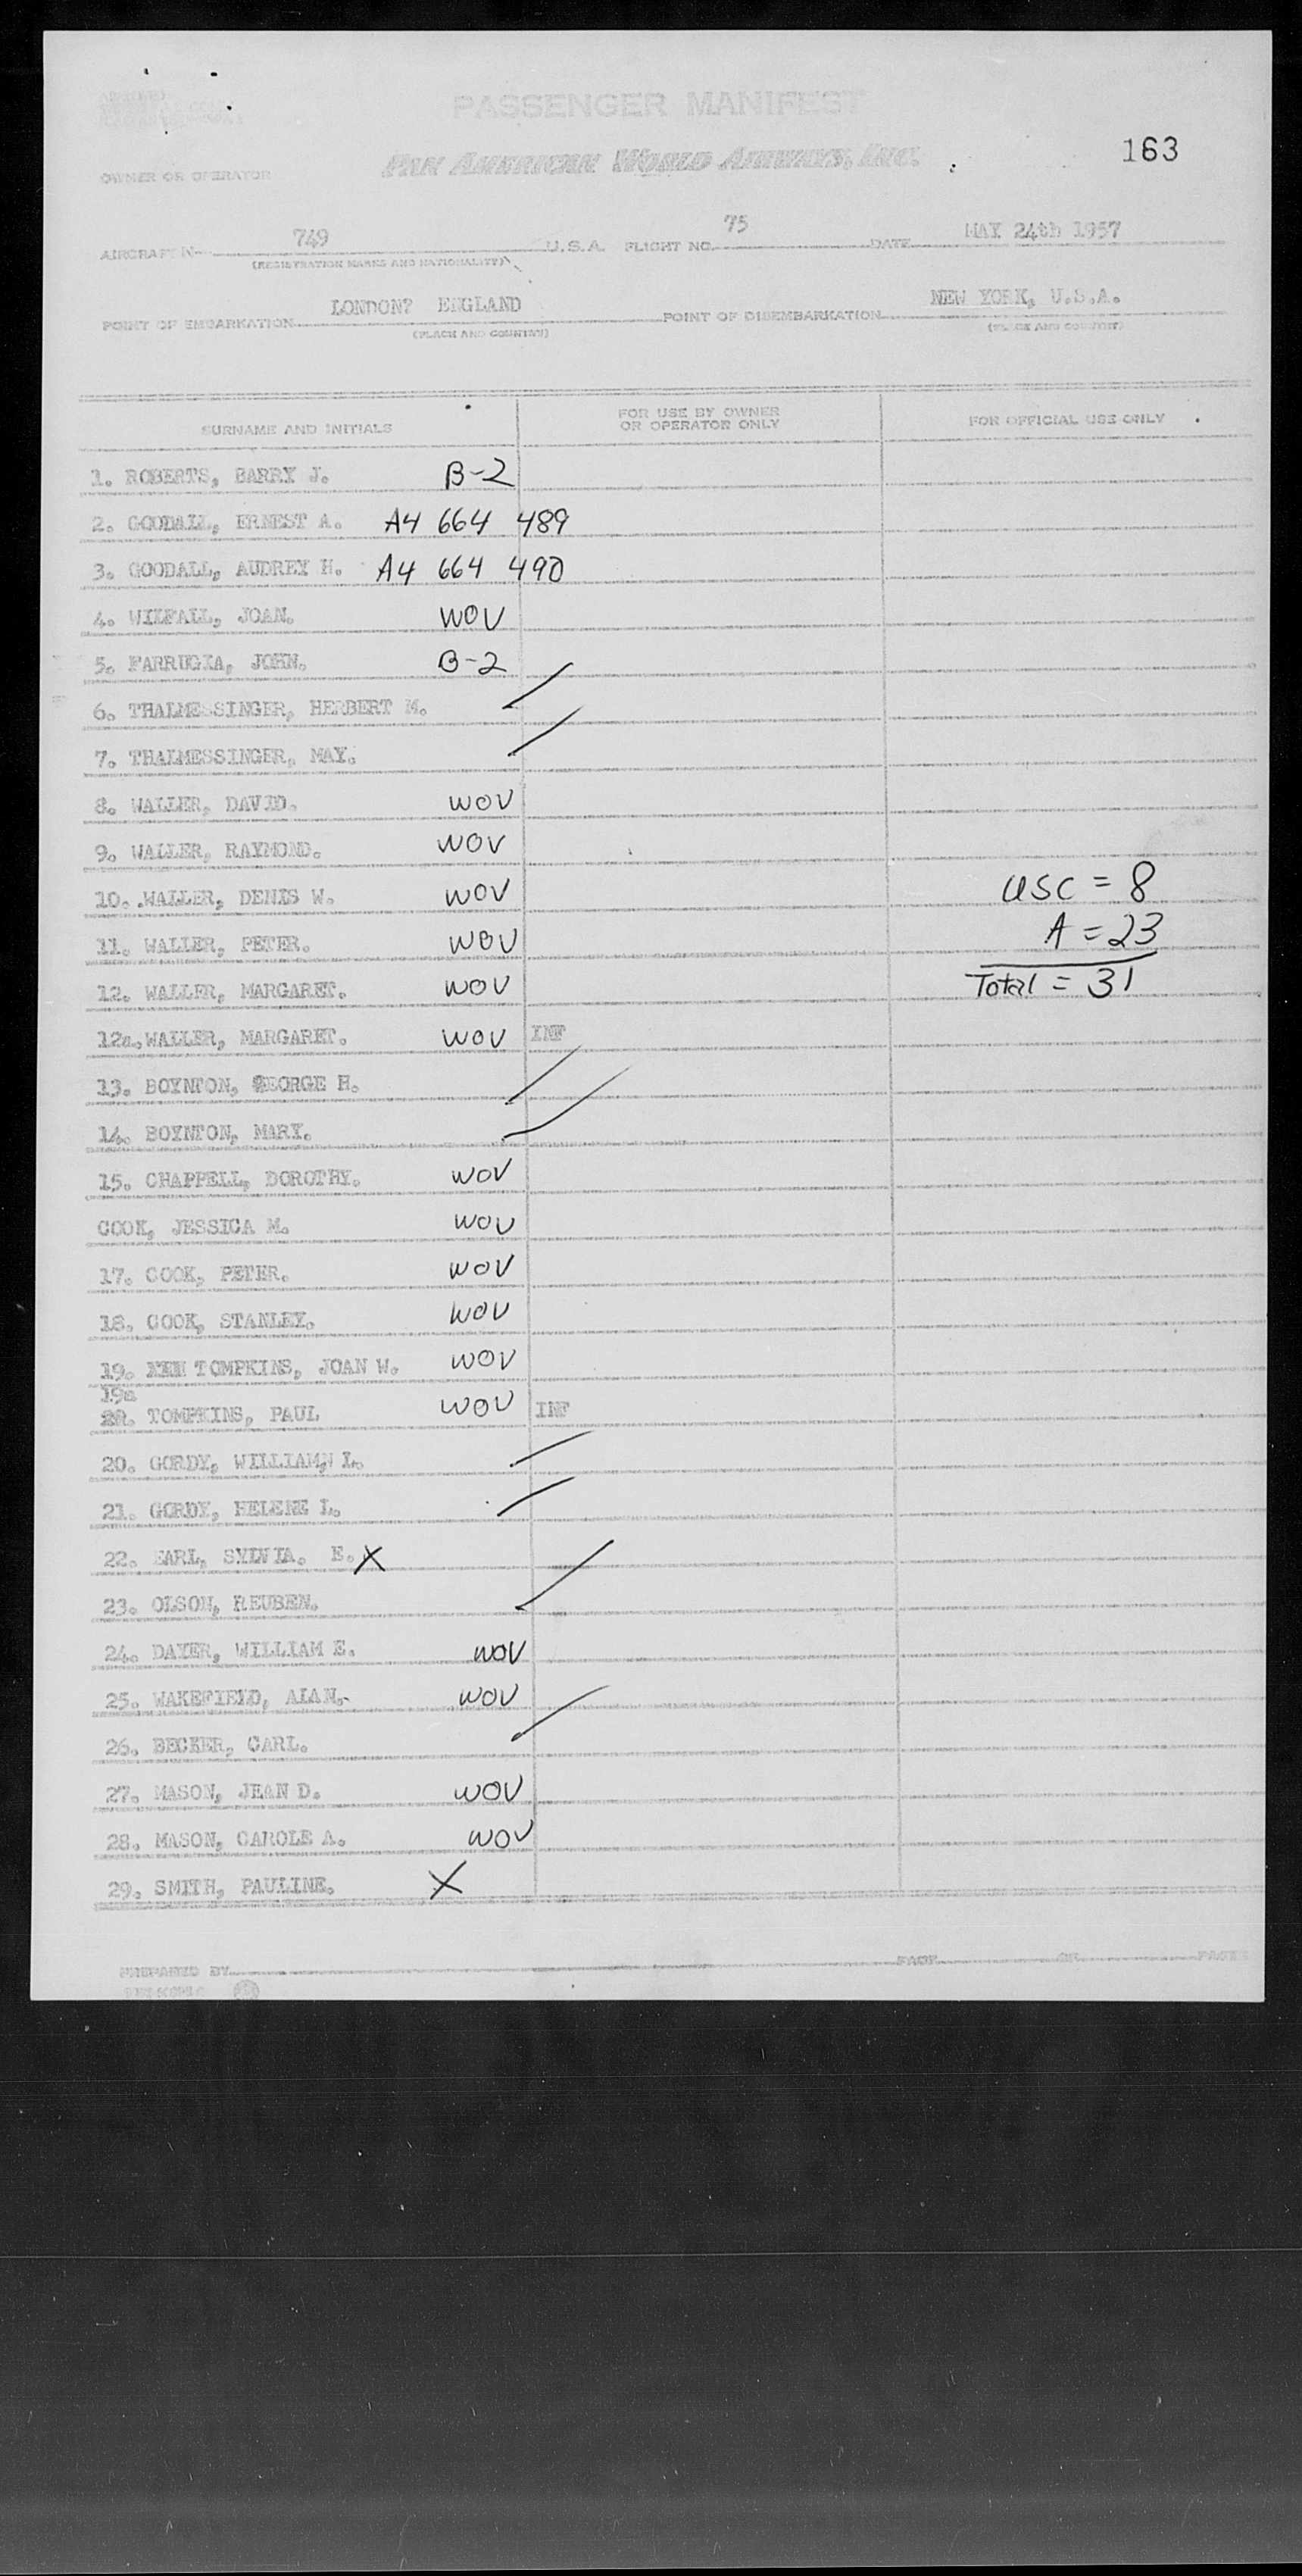 PASSENGER MANIFEST
PAN AMERICAN WORLD AIRWAYS, INC.
163
OWNER OR OPERATOR
AIRCRAFT N 749 U.S.A. FLIGHT NO. 75 DATE MAY 24th 1957
(REGISTRATION MARKS AND NATIONALITY)
POINT OF EMBARKATION LONDON? ENGLAND POINT OF DISEMBARKATION NEW YORK, U.S.A.
(PLACE AND COUNTRY) (PLACE AND COUNTRY)
SURNAME AND INITIALS FOR USE BY OWNER OR OPERATOR ONLY FOR OFFICIAL USE ONLY
1. ROBERTS, BARRY J. B-2
2. GOODALL, ERNEST A. A4 664 489
3. GOODALL, AUDREY H. A4 664 490
4. WILFALL, JOAN. WOV
5. FARRUGIA, JOHN. B-2
6. THALMESSINGER, HERBERT M.
7. THALMESSINGER, MAY.
8. WALLER, DAVID. WOV
9. WALLER, RAYMOND. WOV
10. .WALLER, DENIS W. WOV USC = 8
11. WALLER, PETER. WOV A = 23
12. WALLER, MARGARET. WOV Total = 31
12a. WALLER, MARGARET. WOV INF
13. BOYNTON, GEORGE H.
14. BOYNTON, MARY.
15. CHAPPELL, DOROTHY. WOV
COOK, JESSICA M. WOV
17. COOK, PETER. WOV
18. COOK, STANLEY. WOV
19. TOMPKINS, JOAN W. WOV
19a
TOMPKINS, PAUL WOV INF
20. GORDY, WILLIAM, L.
21. GORDY, HELENE L.
22. EARL, SYLVIA. E. X
23. OLSON, REUBEN.
24. DAYER, WILLIAM E. WOV
25. WAKEFIELD, ALAN. WOV
26. BECKER, CARL.
27. MASON, JEAN D. WOV
28. MASON, CAROLE A. WOV
29. SMITH, PAULINE. X
PREPARED BY PAGE OF PAGES